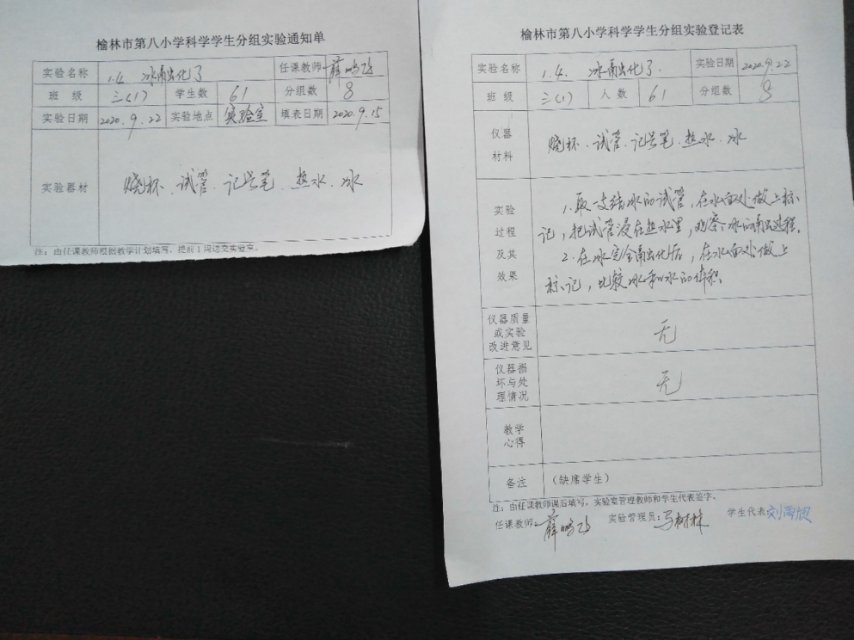 榆林市第八小学科学学生分组实验通知单
实验名称 1.4. 冰融化了 任课教师 薛鹏
班 级 三(1) 学生数 61 分组数 8
实验日期 2020.9.22 实验地点 实验室 填表日期 2020.9.15
实验器材 烧杯、试管、记号笔、热水、冰
注：由任课教师根据教学计划填写，提前1周送交实验室。
榆林市第八小学科学学生分组实验登记表
实验名称 1.4. 冰融化了. 实验日期 2020.9.22
班 级 三(1) 人 数 61 分组数 8
仪器
材料
烧杯、试管、记号笔、热水、冰
实验
过程
及其
效果
1.取一支结冰的试管,在冰面处做上标
记,把试管浸在热水里,观察冰的融化过程.
2.在冰完全融化后,在水面处做上
标记,比较冰和水的体积.
仪器质量
或实验
改进意见
无
仪器损
坏与处
理情况
无
教学
心得
备注 （缺席学生）
注：由任课教师课后填写，实验室管理教师和学生代表签字。
任课教师: 薛鹏 实验管理员: 马树林 学生代表: 刘雨